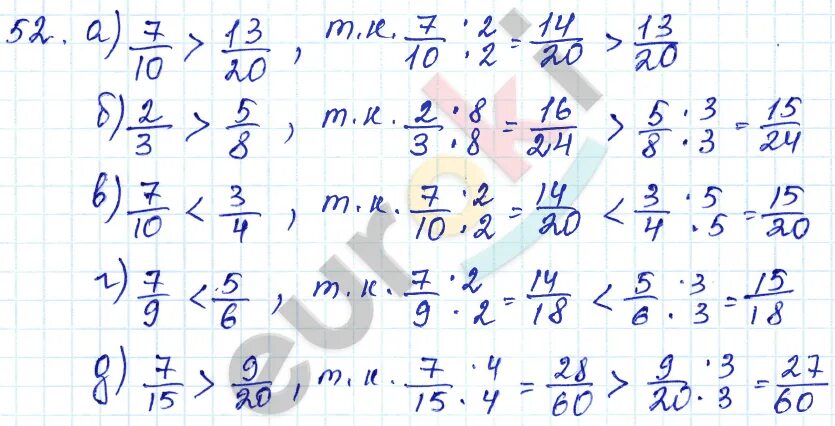 52. а) 7/10 > 13/20, т.к. 7·2/10·2 = 14/20 > 13/20
б) 2/3 > 5/8, т.к. 2·8/3·8 = 16/24 > 5·3/8·3 = 15/24
в) 7/10 < 3/4, т.к. 7·2/10·2 = 14/20 < 3·5/4·5 = 15/20
г) 7/9 < 5/6, т.к. 7·2/9·2 = 14/18 < 5·3/6·3 = 15/18
д) 7/15 > 9/20, т.к. 7·4/15·4 = 28/60 > 9·3/20·3 = 27/60
euroki